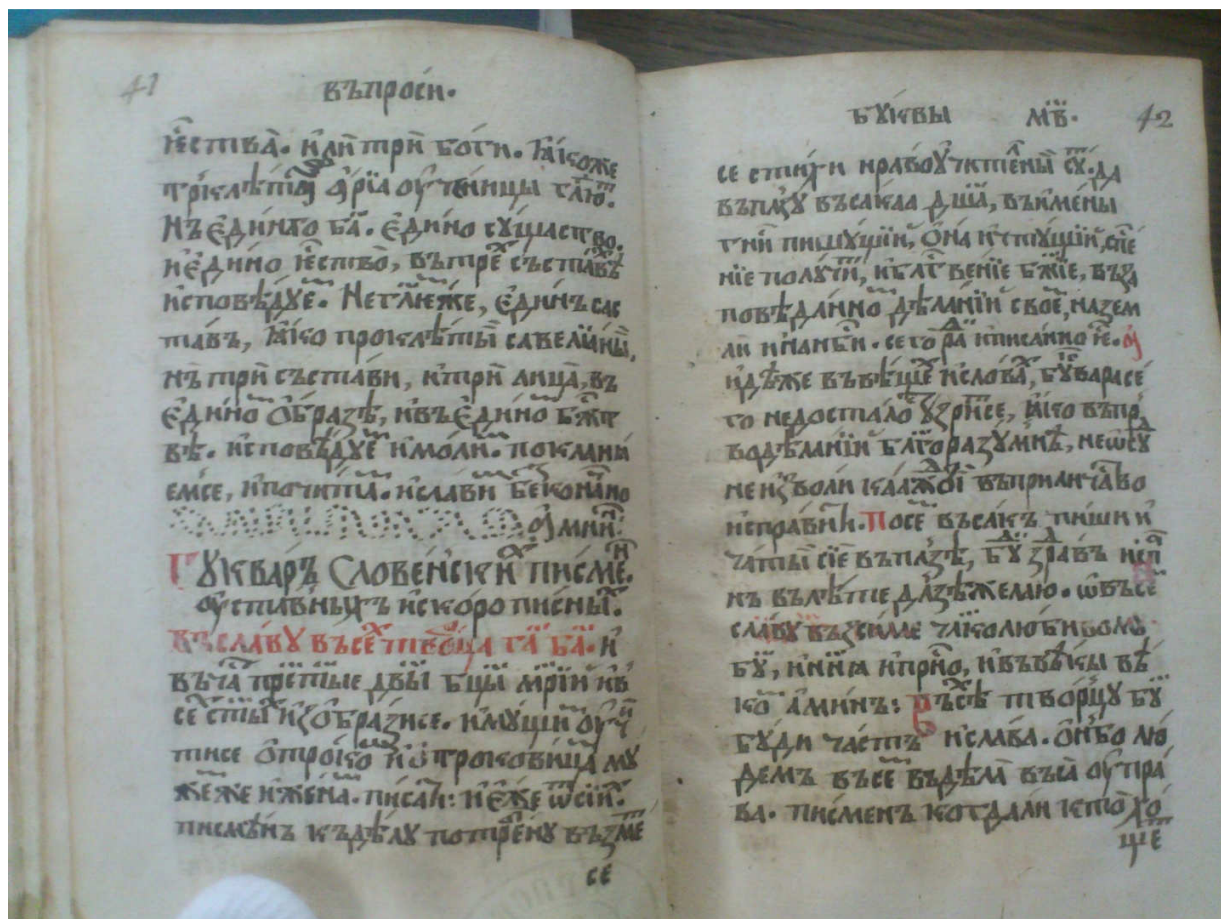 41
въпроси.
їества. или три боги. ꙗкоже
ученицы
нъ единаго ба. едино существо.
и едино їество, въ тре съставѣ
исповѣдуе. не глю же, единъ сас
тавъ, ꙗко проклѣты савелїаны,
нъ три състави, и три лица, въ
едино образѣ, и въ едино бжⷭт
вѣ. исповѣдуе и моли. покланꙗ
емсе, и почита. и слави бесконачно
аминь
Букваръ Словенски писме.
уставныхъ и скорописны.
Въ славу въсе творца га ба. и
въ ча прⷭтые двы бцы мрїи и въ
се сты изобразисе. имущи учи
тисе отроко и отроковица му
же же и жена. писати: и еже ѿ сїи
писмѧнъ къ дѣлу потребну възме
се
Буквы мв. 42
се стиги нравоучителны су. да
въ ползу въсакаа дша, въ имены
пишущїи, она к спе
нїе получи, и блгⷭвенїе бжїе, въ за
повѣданно дѣланїи свое, на зем
ли и на нбси. сего ра и писанно е. а
идѣже въ вещꙗ и слова, буквара се
го недостало узритсе, ꙗко въ пръ
во дѣланїи благоразумнѣ, не ѡсу
но изволи каждоі въ приличаво
исправити. Посе въсакъ пиши и
чаты сїе въ ползѣ, буди здравъ и
нъ въ лѣтїе желаю. ѡ въсе
славу възсилае чаколюбивому
бу, и нинꙗ и прⷭно, и въ вѣкы вѣ
ко аминъ: Въсѣ творцу бу
буди часть и слава. он бо лю
демъ въсе въ дѣла въса упра
ва. писменъ когда ли кто хо
ще